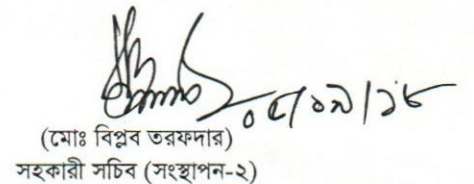 ০৫/০৯/১৮
(মোঃ বিপ্লব তরফদার)
সহকারী সচিব (সংস্থাপন-২)